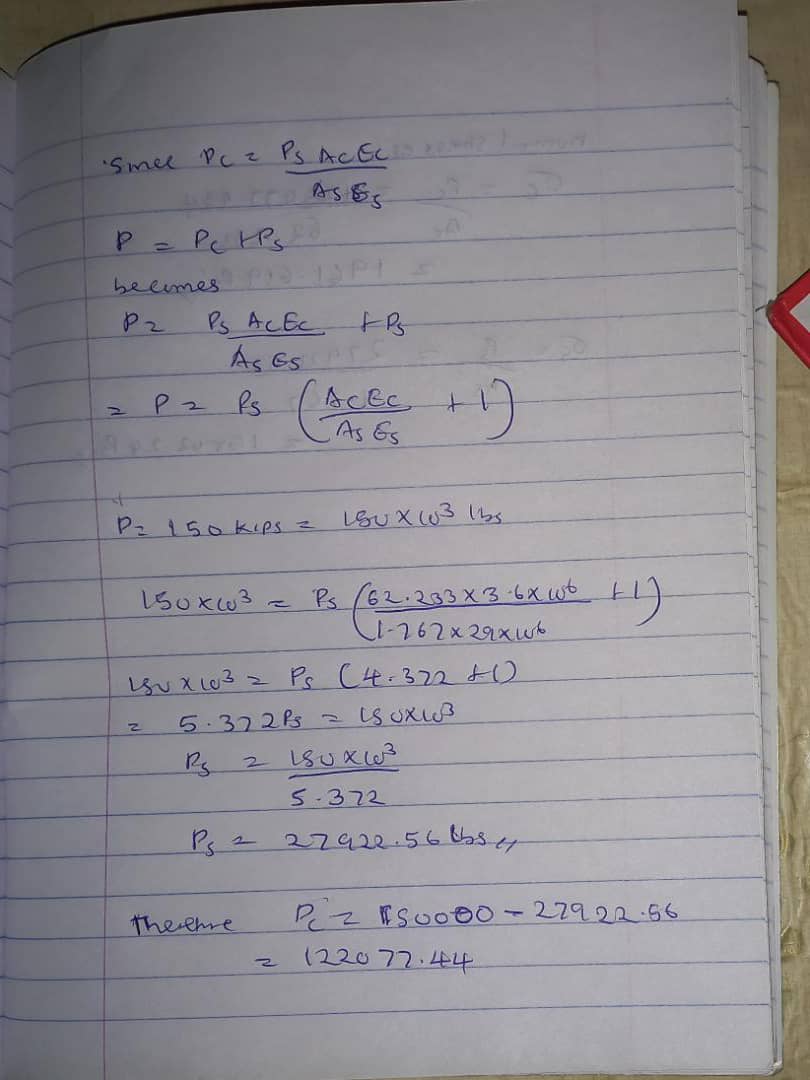 Since Pc = Ps AcEc
As Es
P = Pc + Ps
becomes
P = Ps AcEc + Ps
As Es
= P = Ps (AcEc + 1)
As Es
P = 150 kips = 150 x 10³ lbs
150x10³ = Ps (62.233 x 3.6 x 10⁶ + 1)
1.767 x 29 x 10⁶
150 x 10³ = Ps (4.372 + 1)
= 5.372Ps = 150x10³
Ps = 150 x 10³
5.372
Ps = 27922.56 lbs //
Therefore Pc = 150000 - 27922.56
= 122077.44